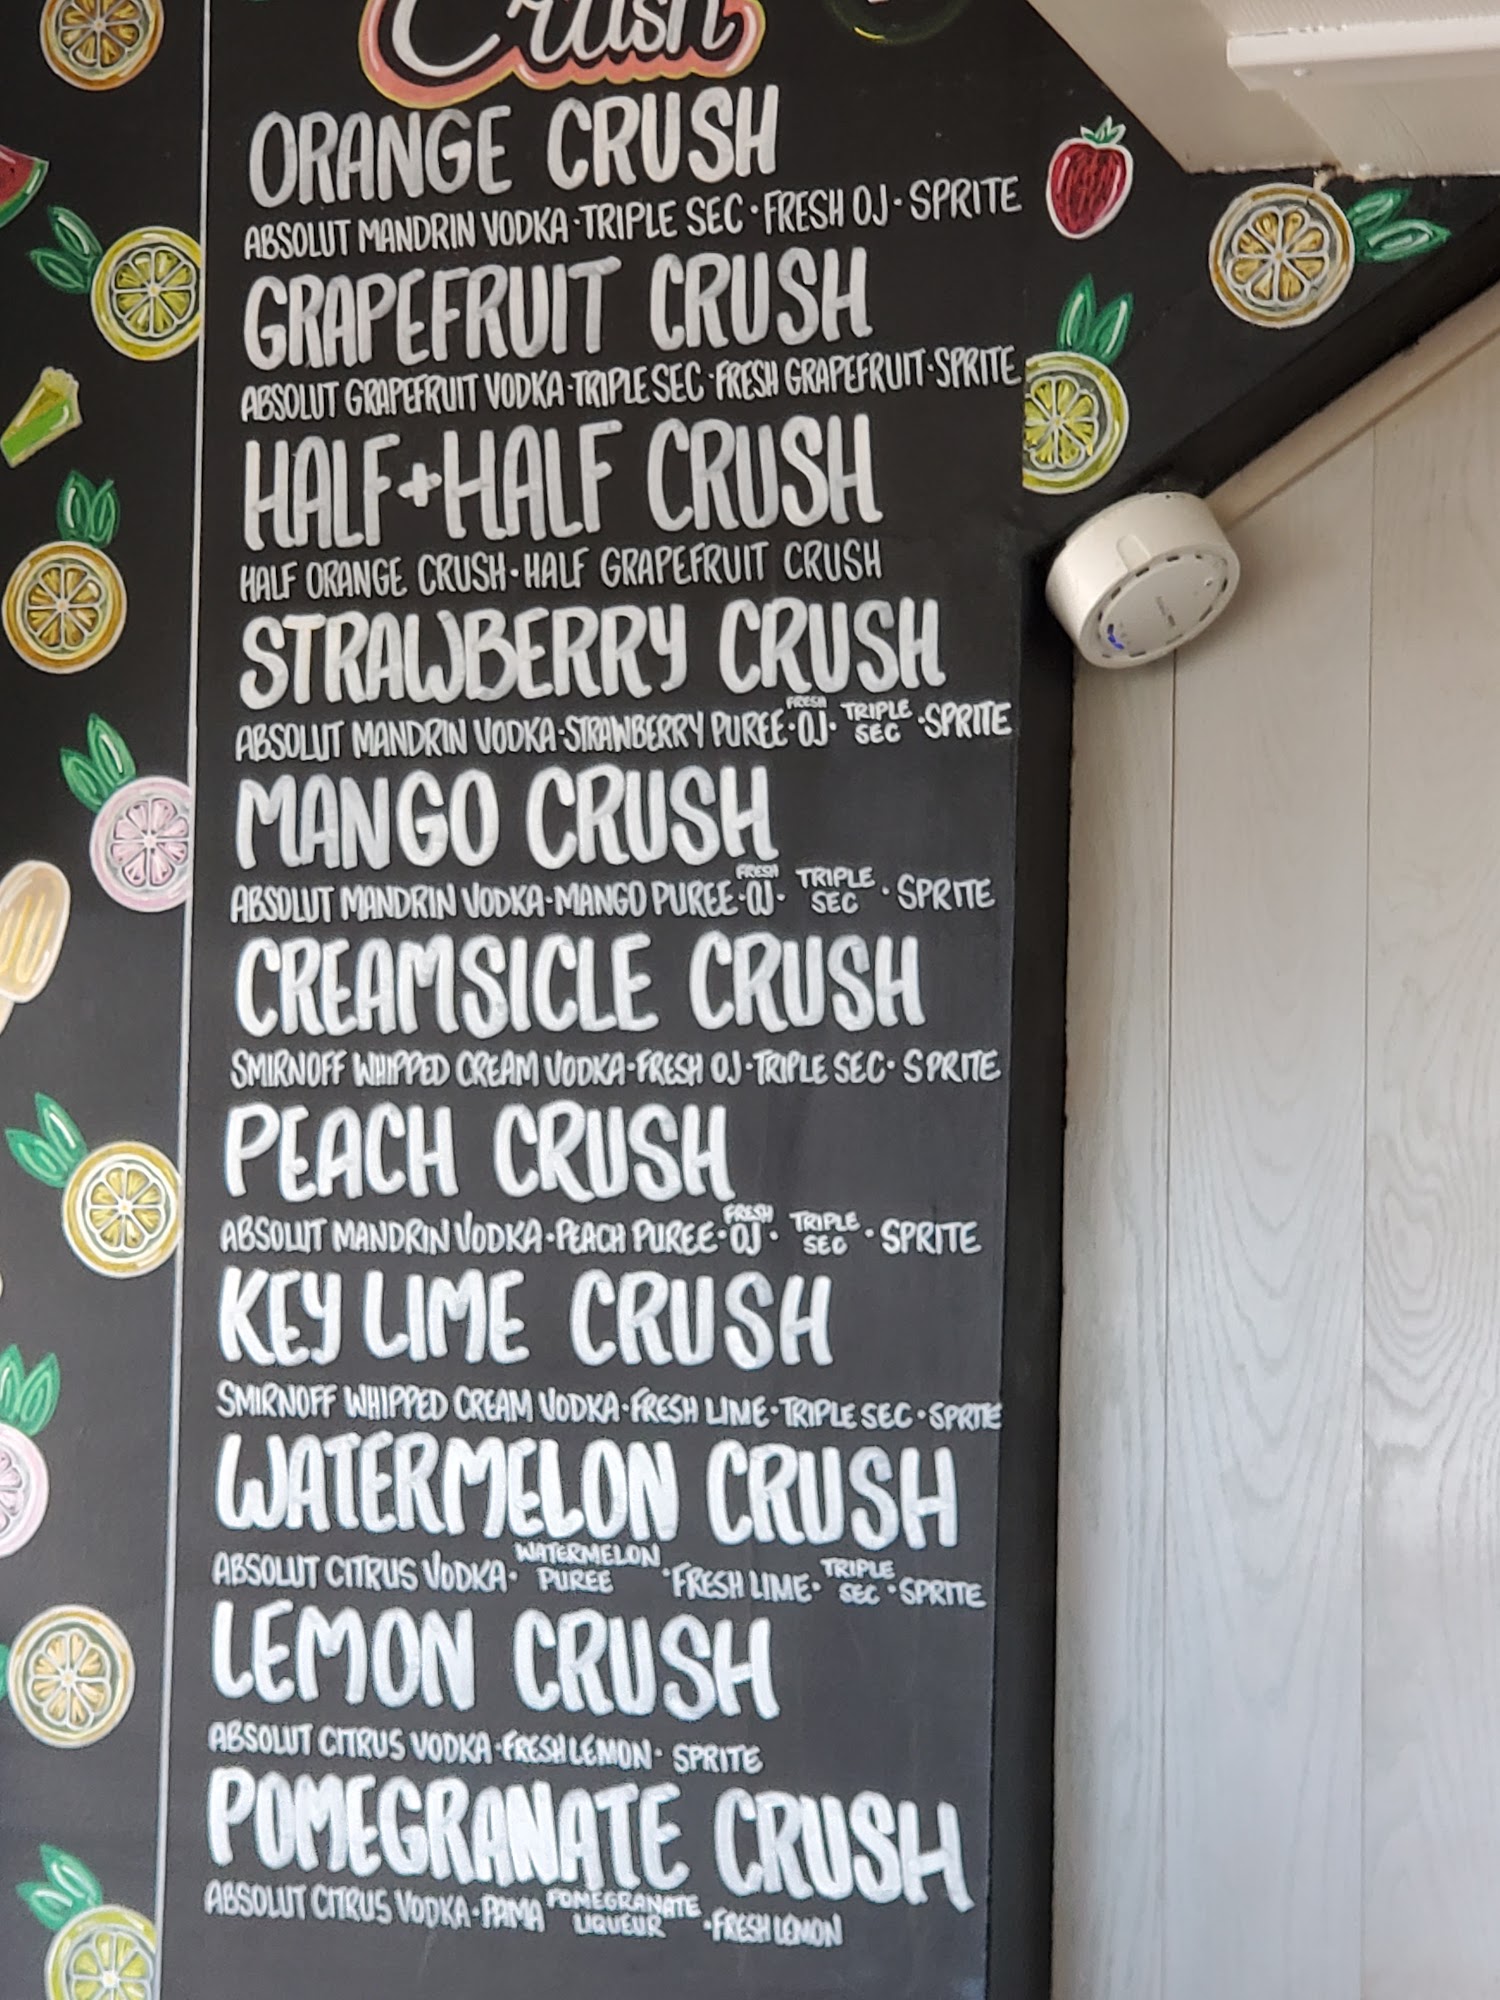 Crush
ORANGE CRUSH
ABSOLUT MANDRIN VODKA · TRIPLE SEC · FRESH OJ · SPRITE
GRAPEFRUIT CRUSH
ABSOLUT GRAPEFRUIT VODKA · TRIPLE SEC · FRESH GRAPEFRUIT · SPRITE
HALF + HALF CRUSH
HALF ORANGE CRUSH · HALF GRAPEFRUIT CRUSH
STRAWBERRY CRUSH
ABSOLUT MANDRIN VODKA · STRAWBERRY PUREE · FRESH OJ · TRIPLE SEC · SPRITE
MANGO CRUSH
ABSOLUT MANDRIN VODKA · MANGO PUREE · FRESH OJ · TRIPLE SEC · SPRITE
CREAMSICLE CRUSH
SMIRNOFF WHIPPED CREAM VODKA · FRESH OJ · TRIPLE SEC · SPRITE
PEACH CRUSH
ABSOLUT MANDRIN VODKA · PEACH PUREE · FRESH OJ · TRIPLE SEC · SPRITE
KEY LIME CRUSH
SMIRNOFF WHIPPED CREAM VODKA · FRESH LIME · TRIPLE SEC · SPRITE
WATERMELON CRUSH
ABSOLUT CITRUS VODKA · WATERMELON PUREE · FRESH LIME · TRIPLE SEC · SPRITE
LEMON CRUSH
ABSOLUT CITRUS VODKA · FRESH LEMON · SPRITE
POMEGRANATE CRUSH
ABSOLUT CITRUS VODKA · PAMA POMEGRANATE LIQUEUR · FRESH LEMON